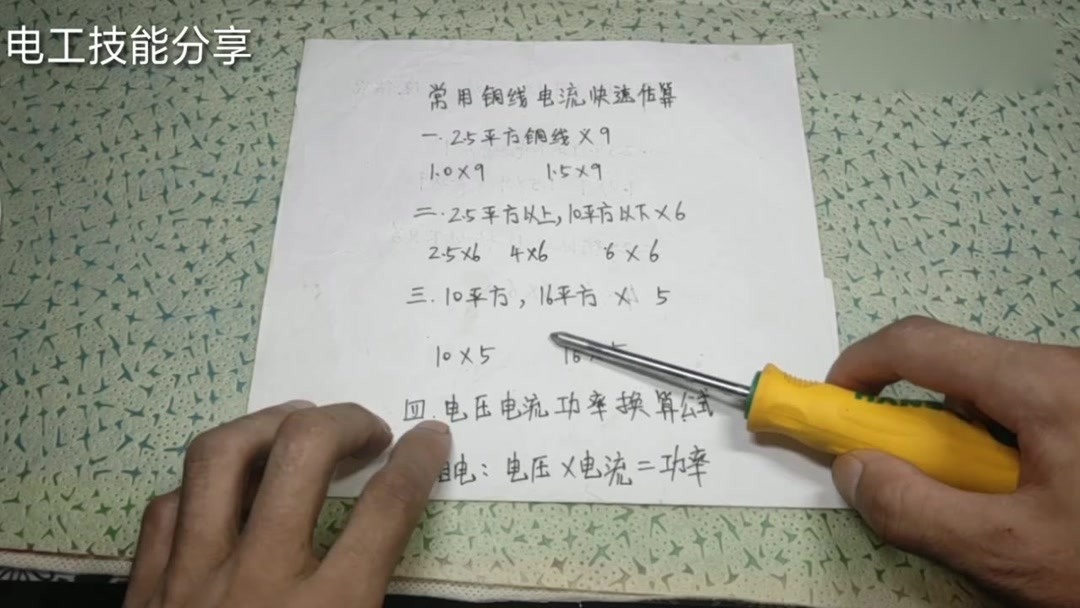 电工技能分享
常用铜线电流快速估算
一.2.5平方铜线×9
1.0×9 1.5×9
二.2.5平方以上,10平方以下×6
2.5×6 4×6 6×6
三.10平方,16平方 × 5
10×5 16×5
四.电压电流功率换算公式
电:电压×电流=功率